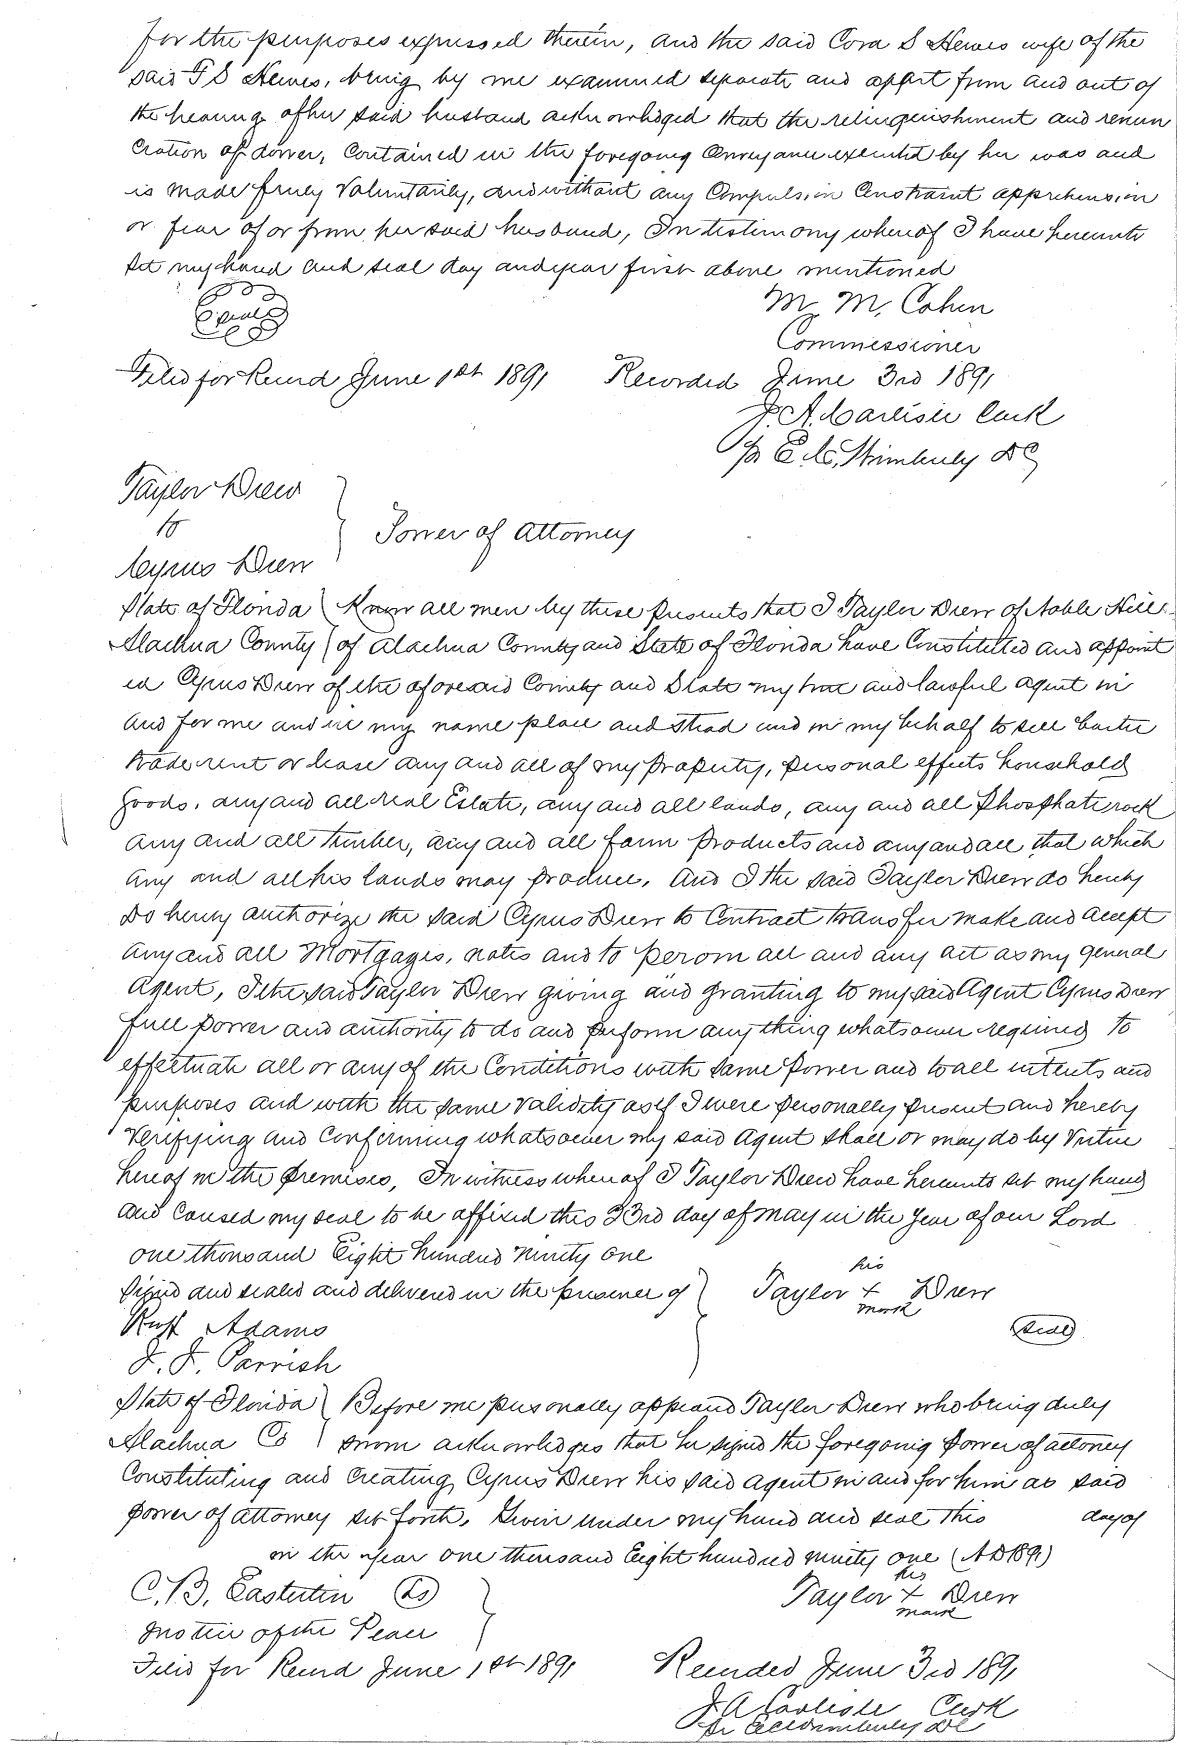 for the purposes expressed therein, and the said Cora S Hewes wife of the
said F S Hewes, being by me examined separate and apart from and out of
the hearing of her said husband acknowledged that the relinquishment and renun
ciation of dower, contained in the foregoing Conveyance executed by her was and
is made freely voluntarily, and without any Compulsion Constraint apprehension
or fear of or from her said husband, In testimony whereof I have hereunto
set my hand and seal day and year first above mentioned
Seal
M. M. Cohen
Commissioner
Filed for Record June 1st 1891 Recorded June 3rd 1891
J. A. Carlisle Clerk
pr E. C. Wimberly DC
Taylor Drew
to
Cyrus Drew
Power of Attorney
State of Florida Know all men by these presents that I Taylor Drew of Noble Hill
Alachua County of Alachua County and State of Florida have Constituted and appoint
ed Cyrus Drew of the aforesaid County and State my true and lawful agent in
and for me and in my name place and stead and in my behalf to sell barter
trade rent or lease any and all of my property, personal effects household
goods, any and all real Estate, any and all lands, any and all Phosphate rock
any and all timber, any and all farm products and any and all that which
any and all his lands may produce. And I the said Taylor Drew do hereby
do hereby authorize the said Cyrus Drew to Contract transfer make and accept
any and all Mortgages, notes and to perom all and any act as my general
agent, I the said Taylor Drew giving and granting to my said Agent Cyrus Drew
full power and authority to do and perform anything whatsoever required to
effectuate all or any of the Conditions with same power and to all intents and
purposes and with the same validity as if I were personally present and hereby
Verifying and Confirming whatsoever my said Agent shall or may do by Virtue
hereof in the premises, In witness whereof I Taylor Drew have hereunto set my hand
and caused my seal to be affixed this 23rd day of May in the year of our Lord
one thousand Eight hundred ninety one
Signed and sealed and delivered in the presence of
his
Taylor + Drew
mark
Seal
Ruff Adams
J. J. Parrish
State of Florida Before me personally appeared Taylor Drew who being duly
Alachua Co sworn acknowledges that he signed the foregoing power of attorney
Constituting and creating Cyrus Drew his said agent in and for him as said
power of attorney set forth. Given under my hand and seal this day of
in the year one thousand Eight hundred ninety one (AD 1891)
his
C. B. Easterlin LS Taylor + Drew
mark
Justice of the Peace
Filed for Record June 1st 1891 Recorded June 3rd 1891
J A Carlisle Clerk
pr E C Wimberly DC